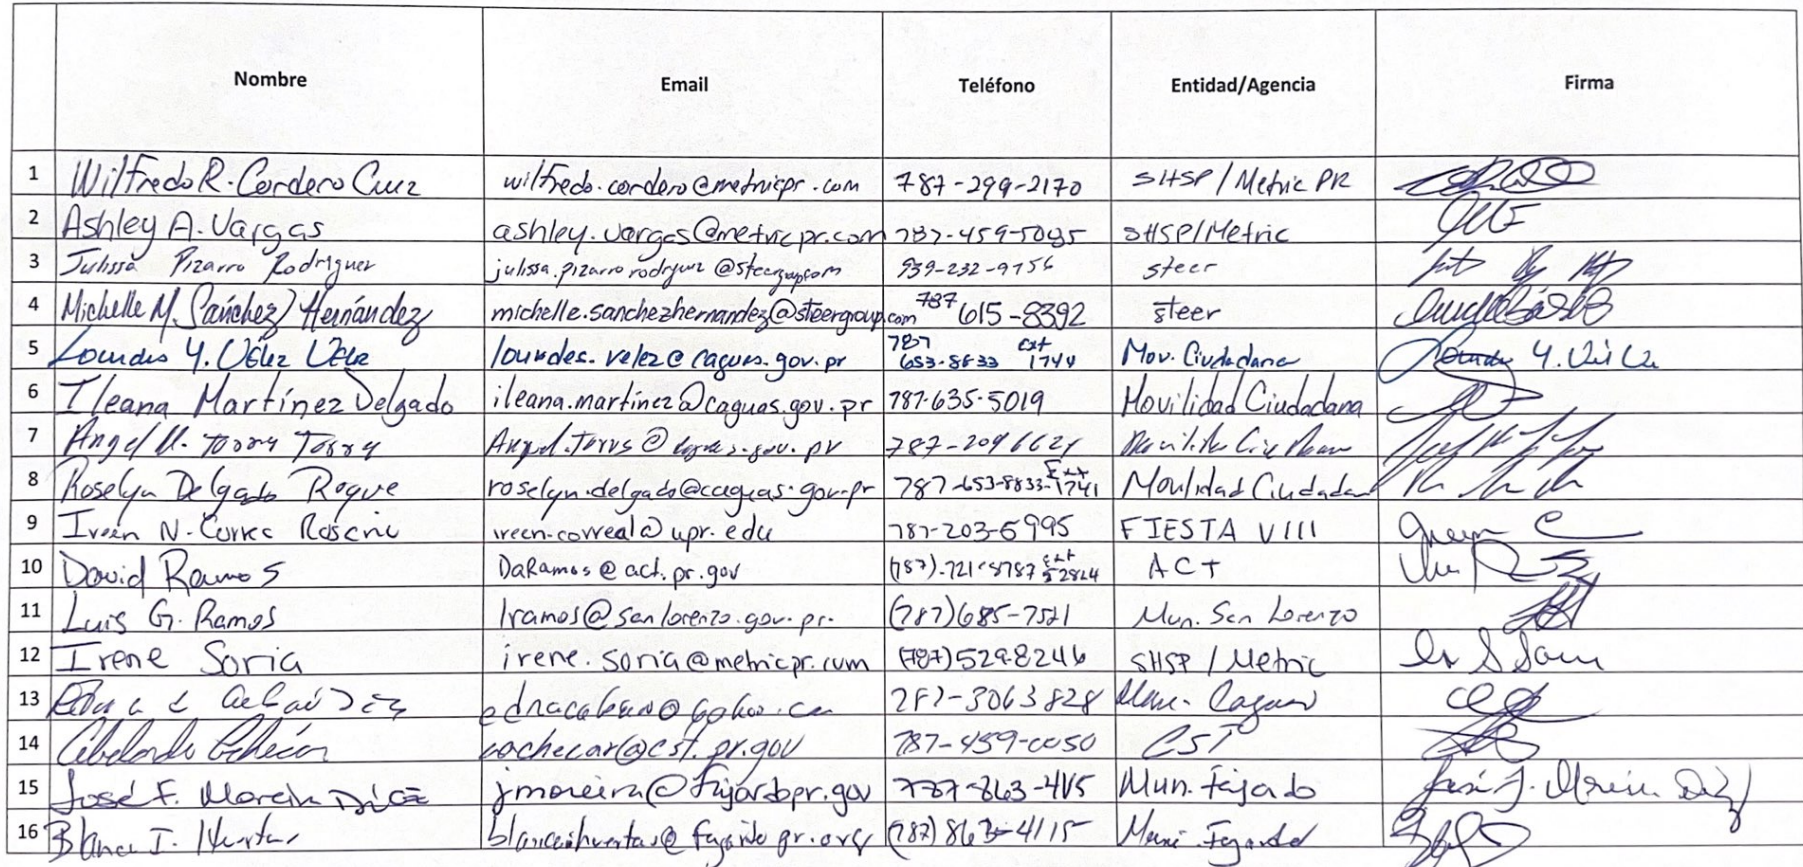 Nombre Email Teléfono Entidad/Agencia Firma
1 Wilfredo R. Cordero Cruz wilfredo.cordero@metricpr.com 787-299-2170 SHSP/Metric PR
2 Ashley A. Vargas ashley.vargas@metricpr.com 787-459-5095 SHSP/Metric
3 Julissa Pizarro Rodriguez julissa.pizarrorodriguez@steergroup.com 939-232-9756 steer
4 Michelle M. Sánchez Hernández michelle.sanchezhernandez@steergroup.com 787 615-8392 steer
5 Lourdes Y. Vélez Vélez lourdes.velez@caguas.gov.pr 787 653-8833 ext 1744 Mov. Ciudadana
6 Ileana Martínez Delgado ileana.martinez@caguas.gov.pr 787-635-5019 Movilidad Ciudadana
7 Angel M. Torres Torres Angel.torres@caguas.gov.pr
8 Roselyn Delgado Roque roselyn.delgado@caguas.gov.pr 787-653-8833 Ext 1741 Movilidad Ciudadana
9 N. Correa ireen.correa1@upr.edu 787-203-5995 FIESTA VIII
10 David Ramos DaRamos@act.pr.gov (787).721-8787 ext 52824 ACT
11 Luis G. Ramos lramos@sanlorenzo.gov.pr. (787)685-7521 Mun. San Lorenzo
12 Irene Soria irene.soria@metricpr.com (787)529-8246 SHSP/Metric
13 787-3063828 Caguas
14 cachecar@cst.pr.gov 787-459-0050 CST
15 José F. Díaz jmoreira@fajardopr.gov 787-863-4115 Mun. Fajardo
16 Blanca I. Huertas (787)863-4115 Fajardo